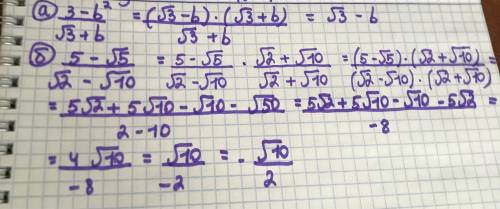 а) (3 - b²)/(√3 + b) = ((√3 - b) · (√3 + b))/(√3 + b) = √3 - b
б) (5 - √5)/(√2 - √10) = (5 - √5)/(√2 - √10) · (√2 + √10)/(√2 + √10) = ((5 - √5) · (√2 + √10))/((√2 - √10) · (√2 + √10)) =
= (5√2 + 5√10 - √10 - √50)/(2 - 10) = (5√2 + 5√10 - √10 - 5√2)/(-8) =
= (4√10)/(-8) = √10/(-2) = - √10/2